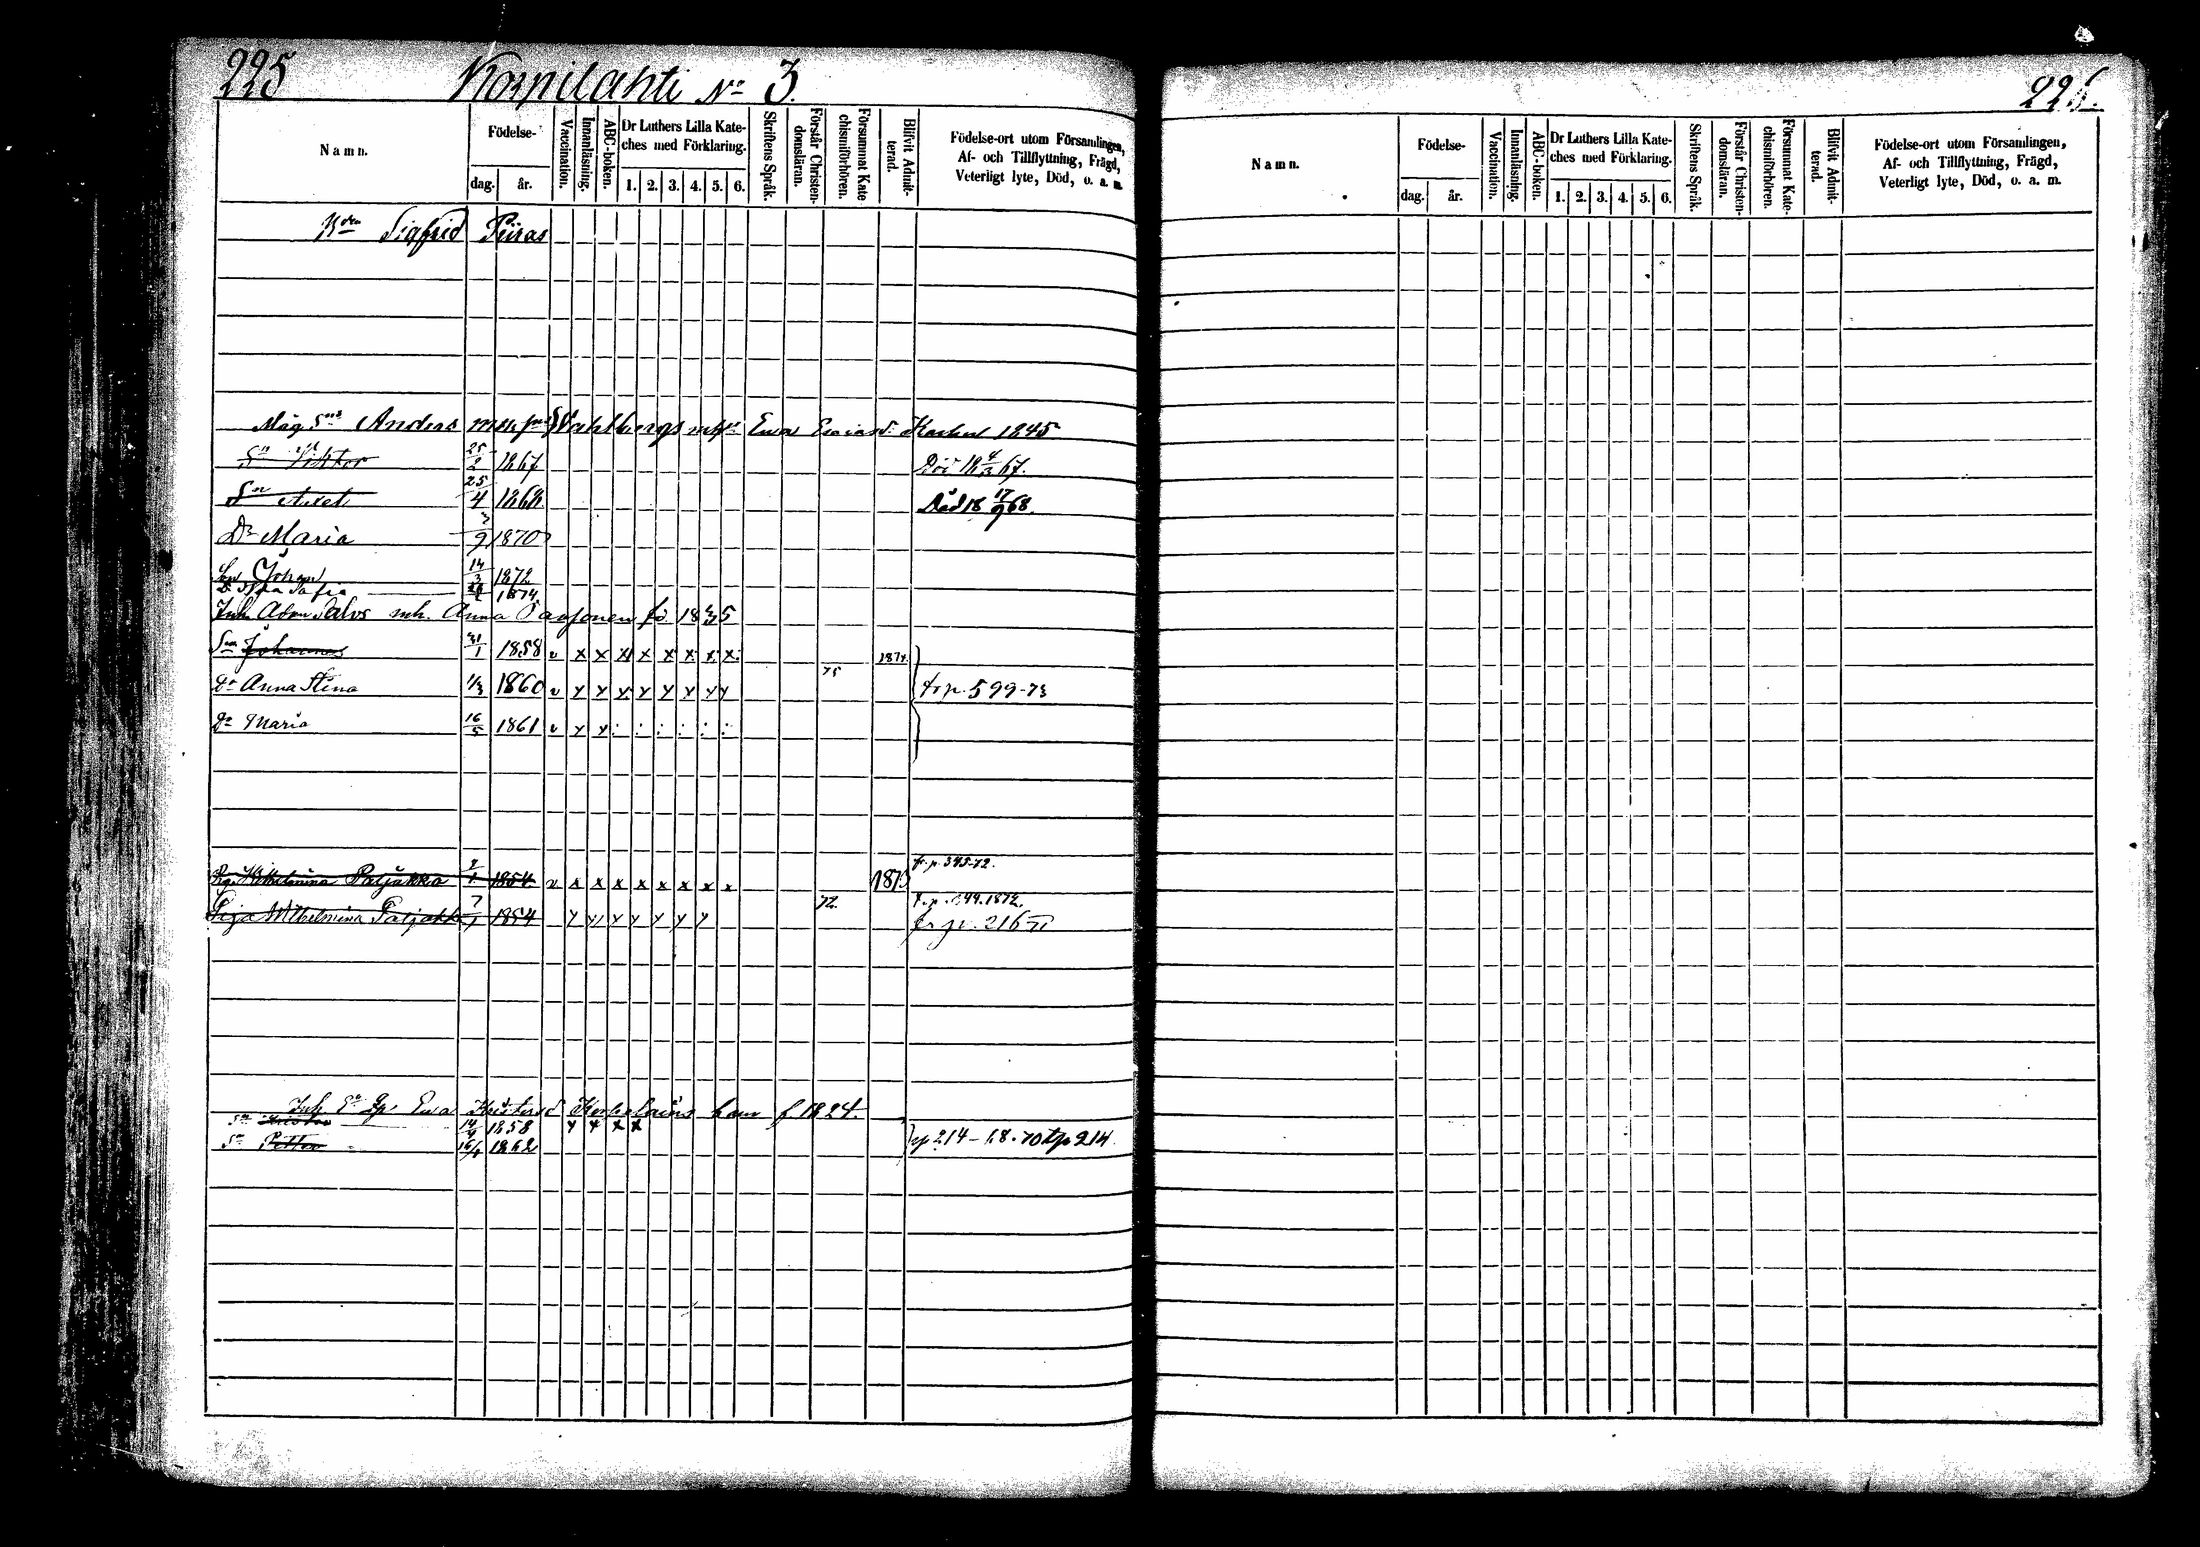 225
Korpilahti No 3.
Namn.
Födelse-
dag. år.
Vaccination.
Innanläsning.
ABC-boken.
Dr Luthers Lilla Kate-
ches med Förklaring.
1. 2. 3. 4. 5. 6.
Skriftens Språk.
Förstår Christen-
domsläran.
Försummat Kate
chismiförhören.
Blifvit Admit-
terad.
Födelse-ort utom Församlingen,
Af- och Tillflyttning, Frägd,
Veterligt lyte, Död, o. a. m.
Sigfrid Peiras
Måg Sns Anders Wahlbergs Ewa Esaiasd: 1845
Sn Viktor 25/2 1867 Död 18 4/3 67.
Sn Axel 25/4 1868 Död 18 17/9 68.
Dr Maria 3/9 1870
Son Johan 14/3 1872
D. Sofia 1874
Inh. Abm Salvs enh. Anna Paavonen fö. 1835
Son Johannes 31/1 1858 v x x x x x x x x 1874.
Dr Anna Stina 1/3 1860 v x x x x x x x x 75 fr p. 599-73
Dr Maria 16/5 1861 v x x : : : : : :
fr. p. 345-72.
Pig. Wilhelmina Paljakka 7/1 1854 v x x x x x x x x 1873
72. 1872.
Piga Wilhelmina Paljakka 7/1 1854 x x x x x x x fr p. 216
Inh. Ewa Christersd f 1824.
Sn 14 1858 x x x x
Sn Petter 16 1862 p 214-68. 70 tp 214.
226.
Namn.
Födelse-
dag. år.
Vaccination.
Innanläsning.
ABC-boken.
Dr Luthers Lilla Kate-
ches med Förklaring.
1. 2. 3. 4. 5. 6.
Skriftens Språk.
Förstår Christen-
domsläran.
Försummat Kate-
chismiförhören.
Blifvit Admit-
terad.
Födelse-ort utom Församlingen,
Af- och Tillflyttning, Frägd,
Veterligt lyte, Död, o. a. m.